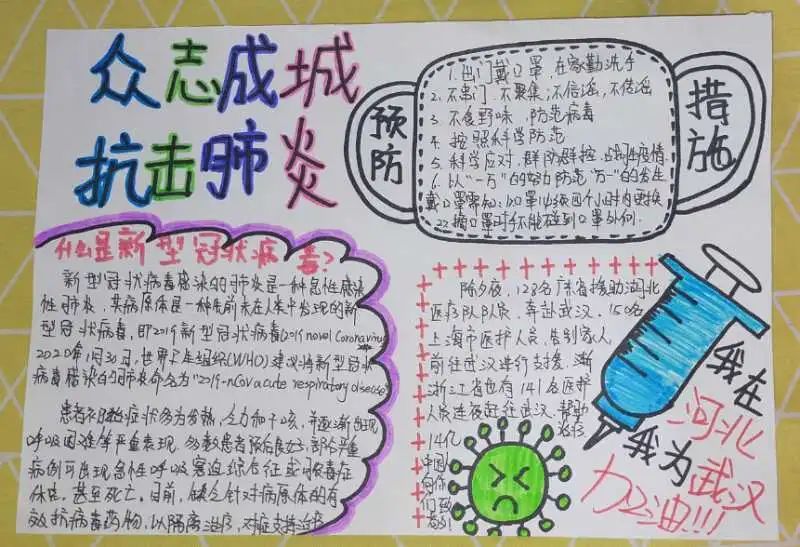 众志成城
抗击肺炎
预防
措施
1. 出门戴口罩，在家勤洗手
2. 不串门，不聚集，不信谣，不传谣
3. 不食野味，防范病毒
4. 按照科学防范
5. 科学应对，群防群控，战胜疫情
6. 以“一万”的努力防范“万一”的发生
戴口罩需知：1.口罩必须四个小时内更换
2.摘口罩时手不能碰到口罩外侧.
什么是新型冠状病毒？
新型冠状病毒感染的肺炎是一种急性感染
性肺炎，其病原体是一种先前未在人类中发现的新
型冠状病毒，即2019新型冠状病毒(2019 novel Coronavirus)
2020年1月30日，世界卫生组织(WHO)建议将新型冠状
病毒感染的肺炎命名为“2019-nCov acute respiratory disease”
患者初始症状多为发热，乏力和干咳，并逐渐出现
呼吸困难等严重表现，多数患者预后良好，部分严重
病例可出现急性呼吸窘迫综合征或脓毒症
休克，甚至死亡，目前，缺乏针对病原体的有
效抗病毒药物，以隔离治疗，对症支持治疗
除夕夜，128名广东省援助湖北
医疗队队员，奔赴武汉，150名
上海市医护人员，告别家人
前往武汉进行支援，
浙江省也有141名医护
人员连夜赶往武汉，帮助
治疗，
14亿
中国
向你
们致
敬！
我在
河北
我为武汉
加油!!!